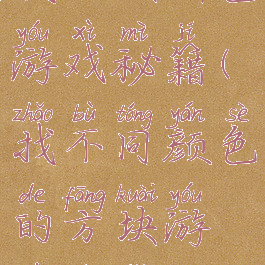 yóu xì mì jí
游戏秘籍(
zhǎo bù tóng yán sè
找不同颜色
de fāng kuài yóu
的方块游